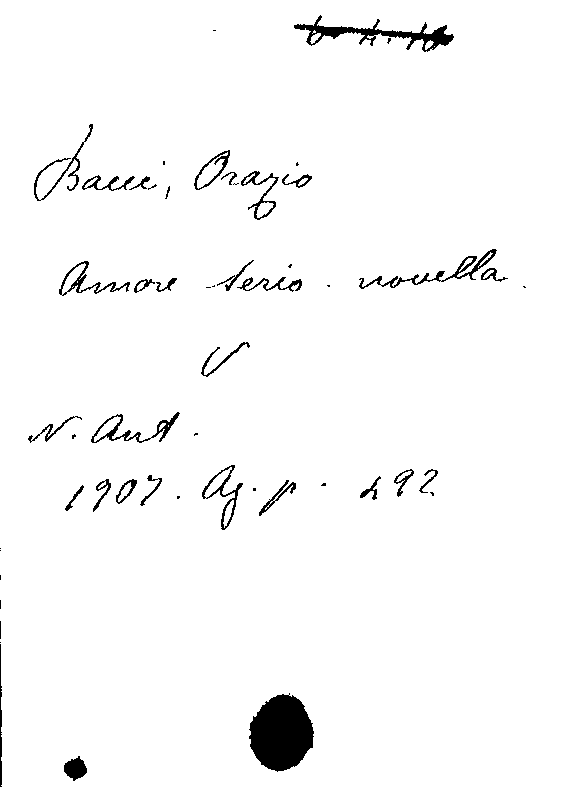 Bacci, Orazio
Amore serio. novella.
V
N. Ant.
1907. Ag. p. 492